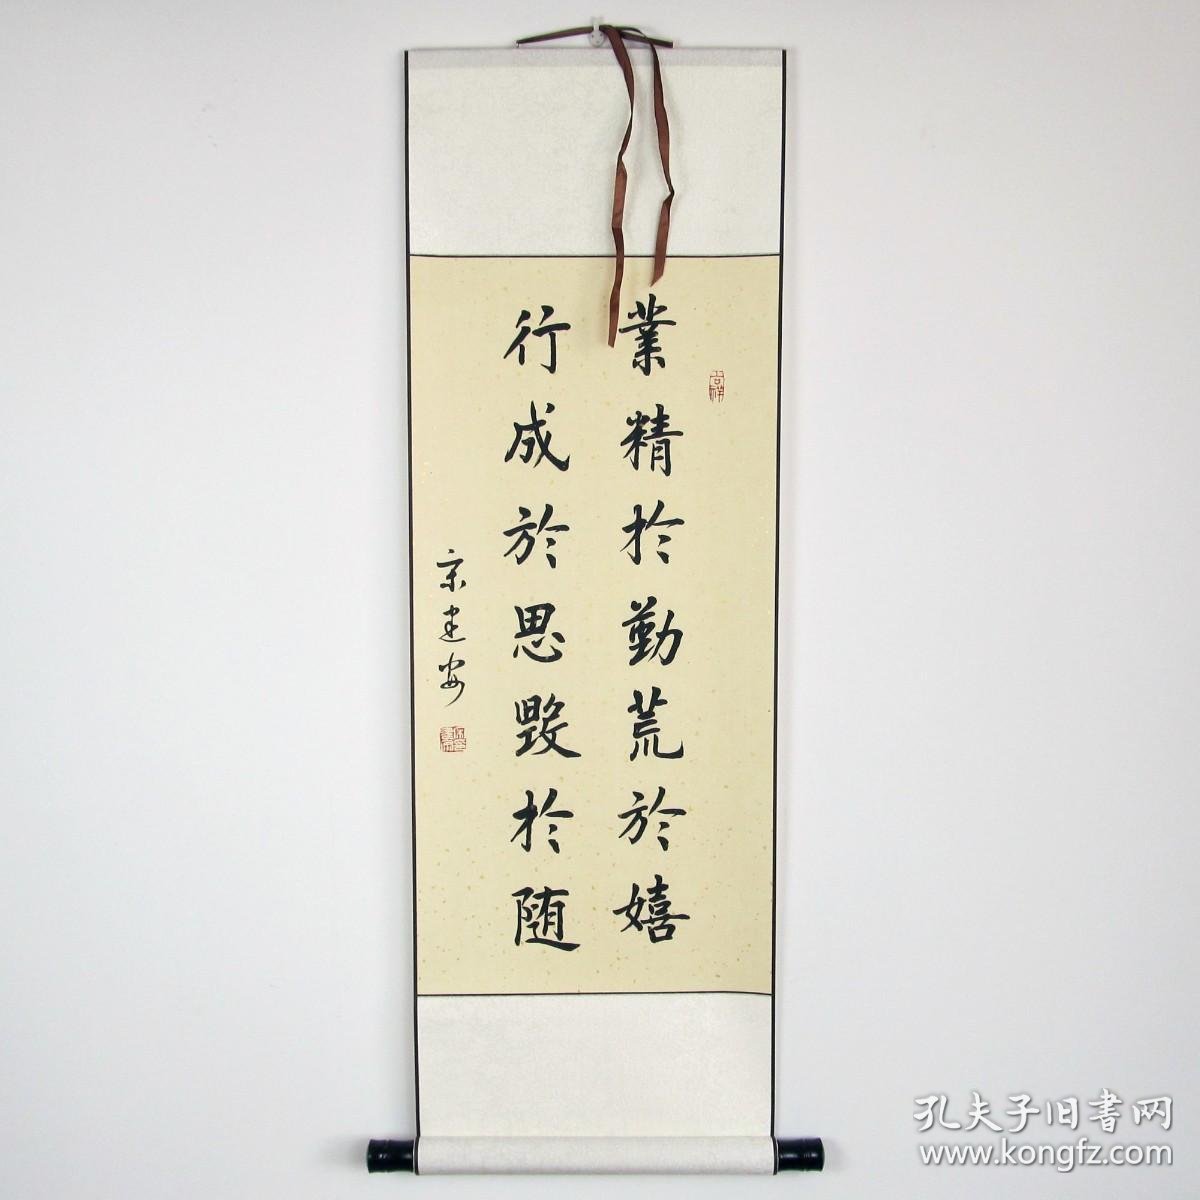 業精於勤荒於嬉
行成於思毀於随
宗建安
吉祥
孔夫子旧書网
www.kongfz.com